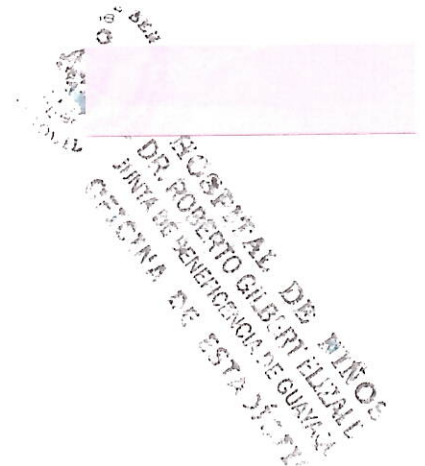 HOSPITAL DE NIÑOS
DR. ROBERTO GILBERT ELIZALDE
JUNTA DE BENEFICENCIA DE GUAYAQUIL
OFICINA DE ESTADISTICA